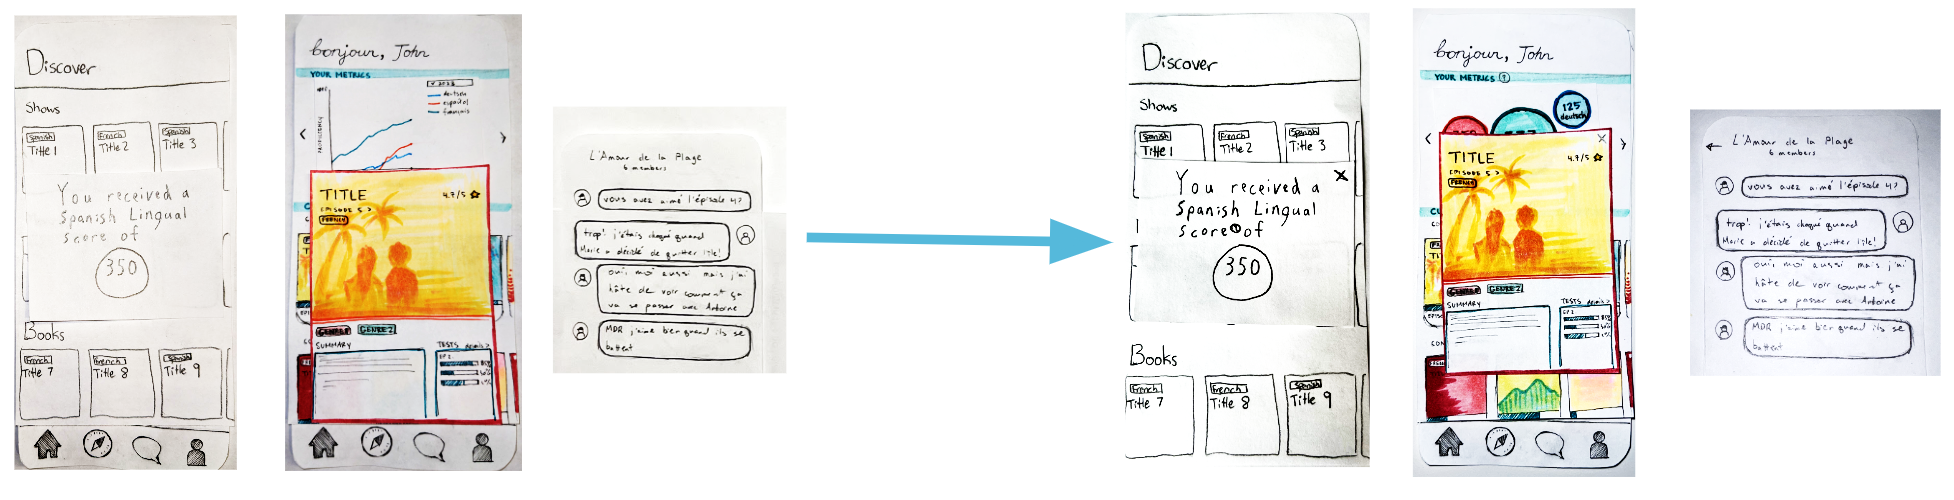 Discover
Shows
Spanish
Title 1
French
Title 2
Spanish
Title 3
You received a
Spanish Lingual
score of
350
Books
French
Title 7
French
Title 8
Spanish
Title 9
bonjour, John
YOUR METRICS
2022
deutsch
español
français
PROFICIENCY
TITLE
4.7/5
EPISODE 5 >
FRENCH
GENRE 2
SUMMARY
TESTS details >
EP 2
L'Amour de la Plage
6 members
vous avez aimé l'épisode 4?
trop! j'étais choqué quand
Marie a décidé de quitter l'île!
oui, moi aussi mais j'ai
hâte de voir comment ça
va se passer avec Antoine
MDR j'aime bien quand ils se
battent
Discover
Shows
Spanish
Title 1
French
Title 2
Spanish
Title 3
You received a
Spanish Lingual
score of
350
Books
French
Title 7
French
Title 8
Spanish
Title 9
bonjour, John
YOUR METRICS
125
deutsch
TITLE
4.7/5
EPISODE 5 >
FRENCH
GENRE 2
SUMMARY
TESTS details >
L'Amour de la Plage
6 members
vous avez aimé l'épisode 4?
trop! j'étais choqué quand
Marie a décidé de quitter l'île!
oui, moi aussi mais j'ai
hâte de voir comment ça
va se passer avec Antoine
MDR j'aime bien quand ils se
battent